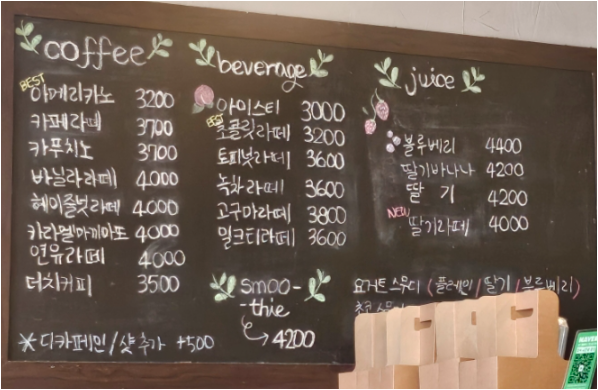 coffee
BEST
아메리카노 3200
카페라떼 3700
카푸치노 3700
바닐라라떼 4000
헤이즐넛라떼 4000
카라멜마끼아또 4000
연유라떼 4000
더치커피 3500
* 디카페인/샷추가 +500
beverage
아이스티 3000
BEST
초콜릿라떼 3200
토피넛라떼 3600
녹차라떼 3600
고구마라떼 3800
밀크티라떼 3600
smoo-
-thie
4200
juice
블루베리 4400
딸기바나나 4200
딸기 4200
NEW
딸기라떼 4000
요거트스무디 (플레인/딸기/블루베리)
NAVER